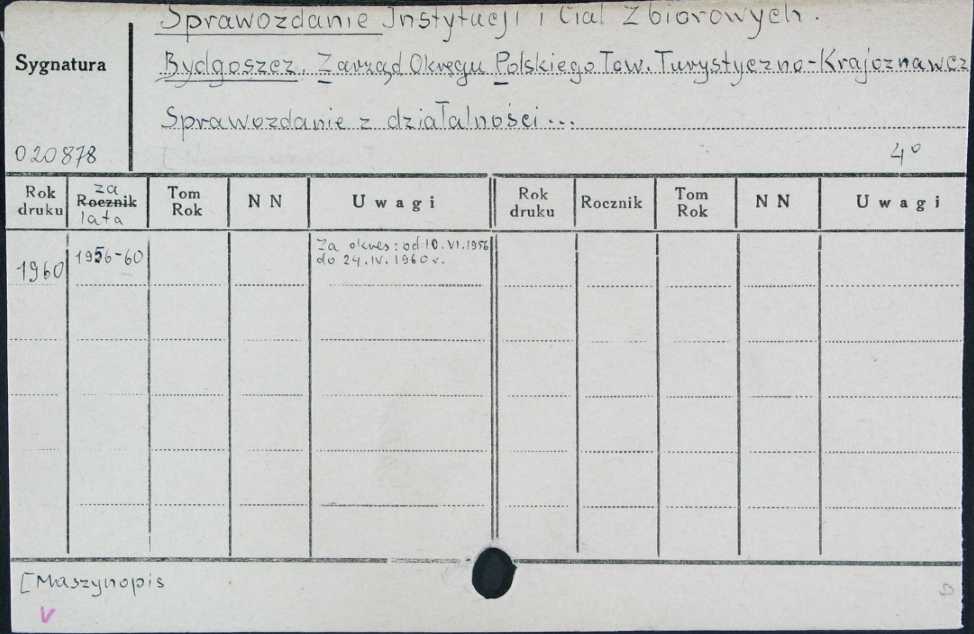 Sprawozdanie Instytucji i Ciał Zbiorowych.
Sygnatura
Bydgoszcz. Zarząd Okręgu Polskiego Tow. Turystyczno-Krajoznawcz
Sprawozdanie z działalności...
020878
4°
Rok druku
za Rocznik lata
Tom Rok
NN
Uwagi
Rok druku
Rocznik
Tom Rok
NN
Uwagi
1960
1956-60
Za okres: od 10.VI.1956
do 24.IV.1960r.
[Maszynopis
V